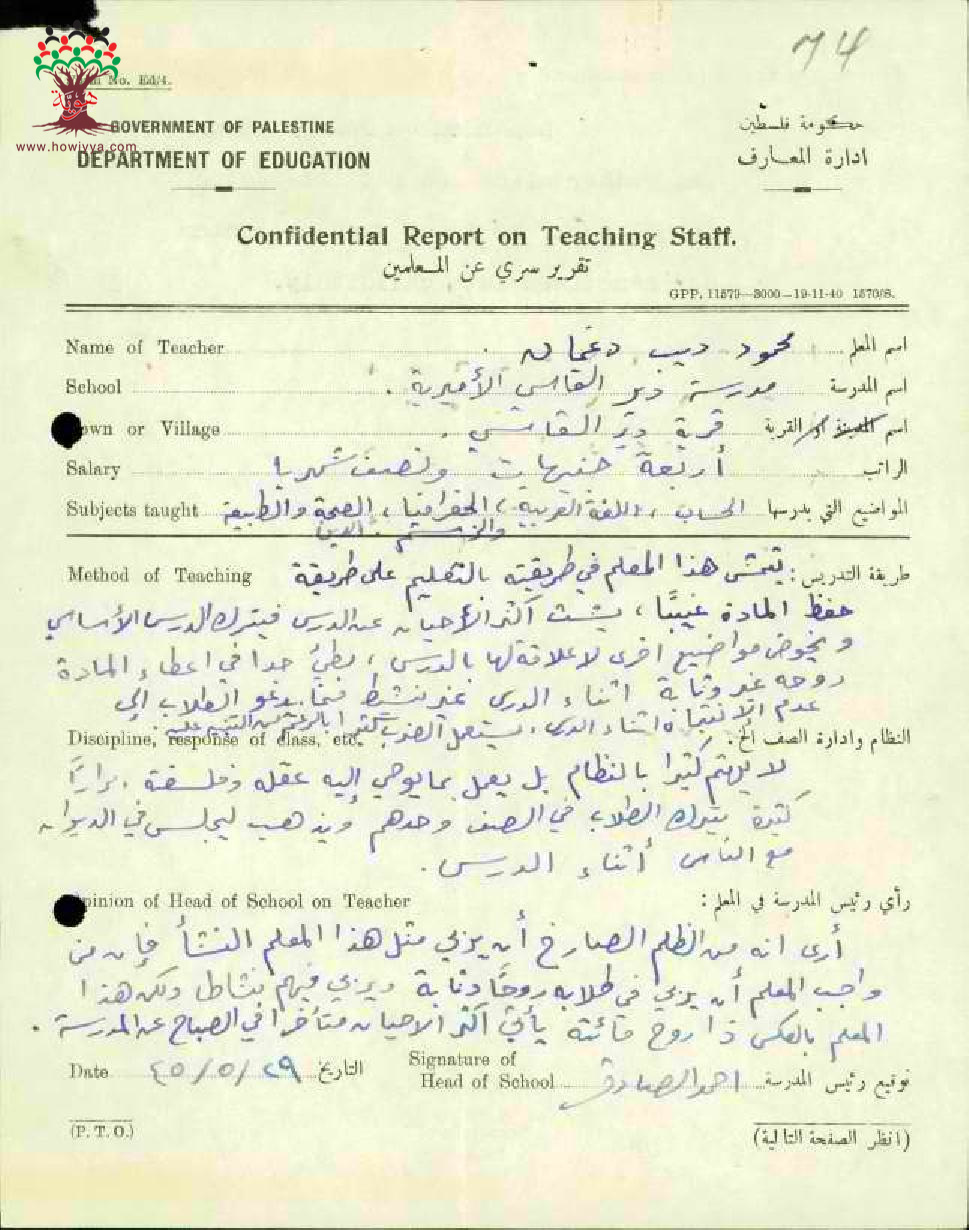 74
Form No. Ed/4.
هوية
www.howiyya.com
GOVERNMENT OF PALESTINE
حكومة فلسطين
DEPARTMENT OF EDUCATION
ادارة المعارف
Confidential Report on Teaching Staff.
تقرير سري عن المعلمين
GPP. 11579—3000—19-11-40 1570/S.
Name of Teacher محمود ديب دغمان اسم المعلم
School مدرسة دير القاسي الأميرية . اسم المدرسة
Town or Village قرية دير القاسي . اسم المدينة او القرية
Salary أربعة جنيهات ونصف شهريا الراتب
Subjects taught الحساب ، اللغة العربية ، الجغرافيا ، الصحة والطبيعة المواضيع التي يدرسها
والرسم . الدين
Method of Teaching يتمشى هذا المعلم في طريقته بالتعليم على طريقة طريقة التدريس :
حفظ المادة غيبًا ، يشت اكثر الأحيان عن الدرس فيترك الدرس الأساسي
ويخوض مواضيع اخرى لا علاقة لها بالدرس ، بطيء جدا في اعطاء المادة
روحه غير وثابة اثناء الدرس غير نشط مما يدعو الطلاب إلى
عدم الانتباه اثناء الدرس . يستعمل الضرب كثيرا بالرغم من التنبيه عليه
Discipline, response of class, etc. النظام وادارة الصف الخ :
لا يهتم كثيرا بالنظام بل يعمل بما يوحي إليه عقله وفلسفته . مرارًا
كثيرة يترك الطلاب في الصف وحدهم ويذهب ليجلس في الديوان
مع الناس أثناء الدرس .
Opinion of Head of School on Teacher رأي رئيس المدرسة في المعلم :
أرى انه من الظلم الصارخ أن يربي مثل هذا المعلم النشأ فإن من
واجب المعلم أن يربي في طلابه روحًا وثابة ويربي فيهم نشاطا ولكن هذا
المعلم بالعكس ذا روح مائتة يأتي اكثر الاحيان متأخرا في الصباح عن المدرسة .
Date ٢٩/٥/٤٥ التاريخ
Signature of
Head of School احمد الصادق توقيع رئيس المدرسة
(P. T. O.)
(انظر الصفحة التالية)